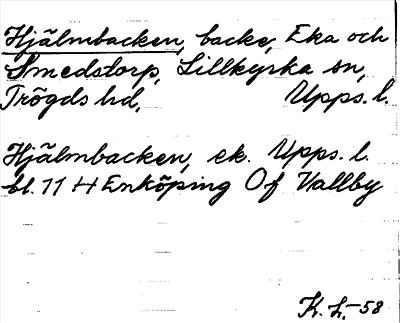 Hjälmbacken, backe, Eka och
Smedstorp, Lillkyrka sn,
Trögds hd, Upps. l.
Hjälmbacken, ek. Upps. l.
bl. 11 H Enköping Of Vallby
K. L. -58